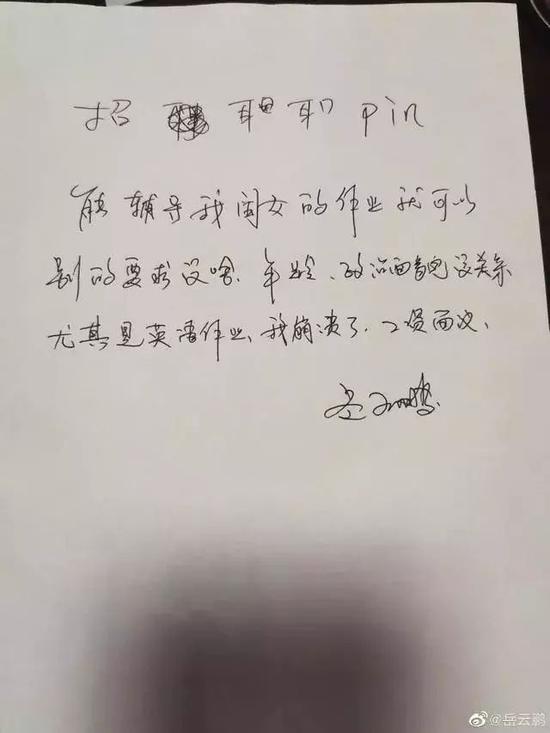 招 耳 职 Pin
能 辅导我闺女的作业就可以
别的要求没啥. 年龄、政治面貌没关系
尤其是英语作业、我崩溃了. 工资面议、
岳云鹏
@岳云鹏